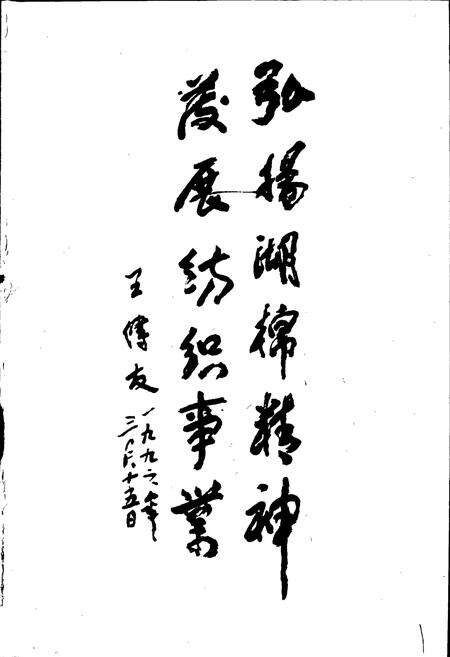 弘揚湖棉精神
發展紡织事業
王傳友
一九九六年
三月十五日